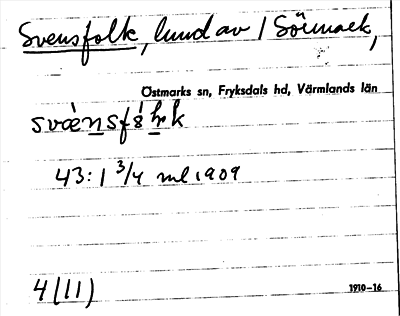 Svensfolk, lund av / Sörmark,
Östmarks sn, Fryksdals hd, Värmlands län
43:1 3/4 ml 1909
4(11)
1910-16